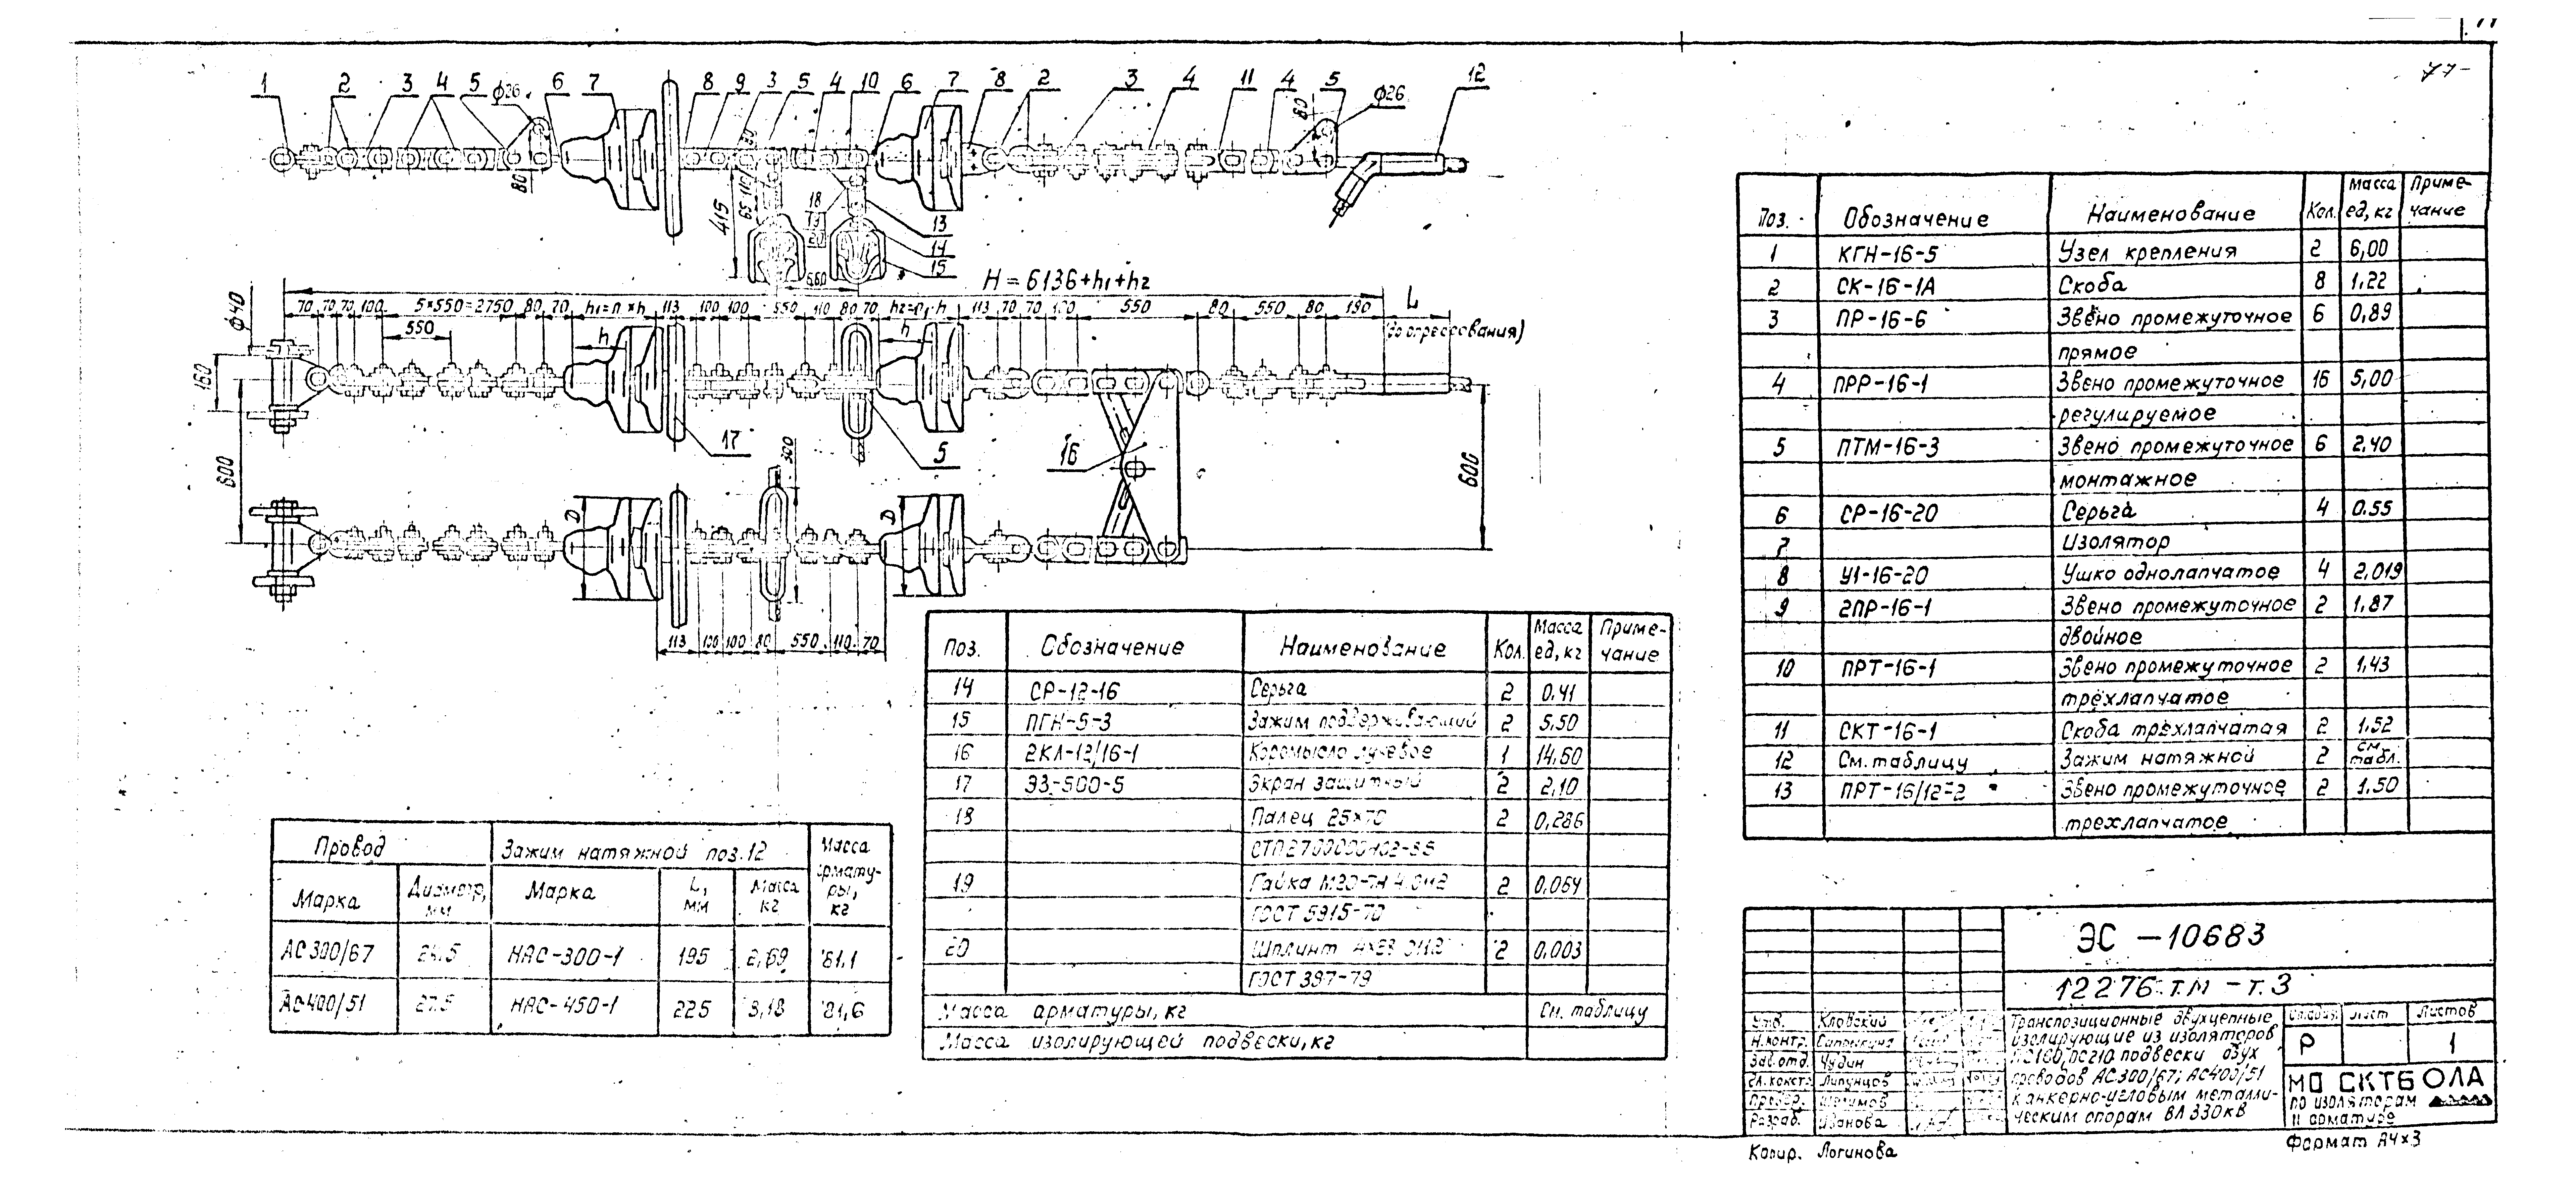 77-
1 2 3 4 5 ф26 6 7 8 9 3 5 4 10 6 7 8 2 3 4 11 4 5 ф26 12
80
80
415
65 110
18
13
14
15
660
H = 6136+h1+h2
L
ф40
70 70 70 100 5×550=2750 80 70 h1=n×h 113 100 100 550 110 80 70 h2=n1·h 113 70 70 100 550 80 550 80 190
550
h
h
160
600
17
5
16
300
600
D
D
113 100 100 80 550 110 70
Поз. Обозначение Наименование Кол. Масса ед, кг Приме-чание
1 КГН-16-5 Узел крепления 2 6,00
2 СК-16-1А Скоба 8 1,22
3 ПР-16-6 Звено промежуточное 6 0,89
прямое
4 ПРР-16-1 Звено промежуточное 16 5,00
регулируемое
5 ПТМ-16-3 Звено промежуточное 6 2,40
монтажное
6 СР-16-20 Серьга 4 0.55
7 Изолятор
8 У1-16-20 Ушко однолапчатое 4 2,019
9 2ПР-16-1 Звено промежуточное 2 1,87
двойное
10 ПРТ-16-1 Звено промежуточное 2 1,43
трёхлапчатое
11 СКТ-16-1 Скоба трёхлапчатая 2 1,52
12 См. таблицу Зажим натяжной 2 см. табл.
13 ПРТ-16/12-2 Звено промежуточное 2 1,50
трехлапчатое
Поз. Обозначение Наименование Кол. Масса ед, кг Приме-чание
14 СР-12-16 Серьга 2 0,41
15 ПГН-5-3 Зажим поддерживающий 2 5,50
16 2КЛ-12/16-1 Коромысло лучевое 1 14,60
17 ЭЗ-500-5 Экран защитный 2 2,10
18 Палец 25×70 2 0,286
19 Гайка 2 0,064
ГОСТ 5915-70
20 Шплинт 2 0,003
ГОСТ 397-79
Масса арматуры, кг См. таблицу
Масса изолирующей подвески, кг
Провод Зажим натяжной поз.12 Масса армату-ры, кг
Марка Диаметр, мм Марка L, мм Масса кг
АС300/67 24.5 НАС-300-1 195 2,69 81,1
АС400/51 27.5 НАС-450-1 225 3,18 81,6
ЭС -10683
12276.тм - т.3
Транспозиционные двухцепные
изолирующие из изоляторов
ПС160, ПС210 подвески двух
проводов АС300/67; АС400/51
к анкерно-угловым металли-
ческим опорам ВЛ 330кВ
Стадия Лист Листов
Р 1
МО СКТБ ОЛА
по изоляторам
и арматуре
Утв. Кловский
Н.контр.
Зав.отд. Чудин
Гл.констр. Липунцов
Провер.
Разраб. Иванова
Копир. Логинова
Формат А4×3